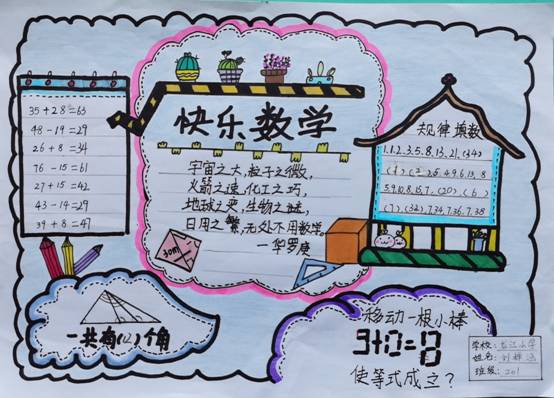 快乐数学
35+28=63
48-19=29
26+8=34
76-15=61
27+15=42
43-14=29
39+8=47
宇宙之大,粒子之微,
火箭之速,化工之巧,
地球之变,生物之谜,
日用之繁,无处不用数学。
—华罗庚
30m
规律填数
1.1.2.3.5.8.13.21.(34)
5.9.10.8.15.7.(20).(6)
一共有(12)个角
移动一根小棒
9+0=8
使等式成立?
学校:龙江小学
姓名:
班级:201